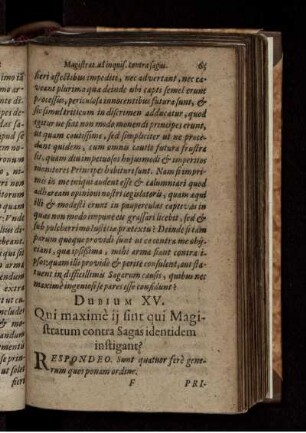 Magistrat. ad inquis. contra sagas. 65
lieri affectibus impedits, nec advertant, nec ca-
veant plurima quæ deinde ubi capti semel erunt
professui, periculosa innocentibus futura sunt, &
sic simul triticum in discrimen adducatur, quod
ego ne fiat non modo monendi principes erunt,
ut quam cautissime, sed simpliciter ut ne proce-
dant quidem, cum omnis cautio futura frustra
sit, quàm diu impetuosos hujusmodi & imperitos
monitores Principes habituri sunt. Nam si impri-
mis iis me iniquè audent esse & calumniari quod
adhæream opinioni nostri legislatoris, quam aqui
illi & modesti erunt in pauperculas captivas in
quas non modo impunè eis grassari licebit, sed &
sub pulcherrimo justitiæ prætextu? Deinde si tam
parum quæque providi sunt ut ex contra me obji-
ciant, quæ ipsissima, mihi arma fiant contra i-
psos, quam illi providè & peritè consulent, aut sta-
tuent in difficillimis Sagarum causis, quibus nec
maximè ingeniosi se pares esse confidunt?
DUBIUM XV.
Qui maximè ij sint qui Magi-
stratum contra Sagas identidem
instigant?
RESPONDEO. Sunt quatuor ferè gene-
rum quos ponam ordine.
F PRI-